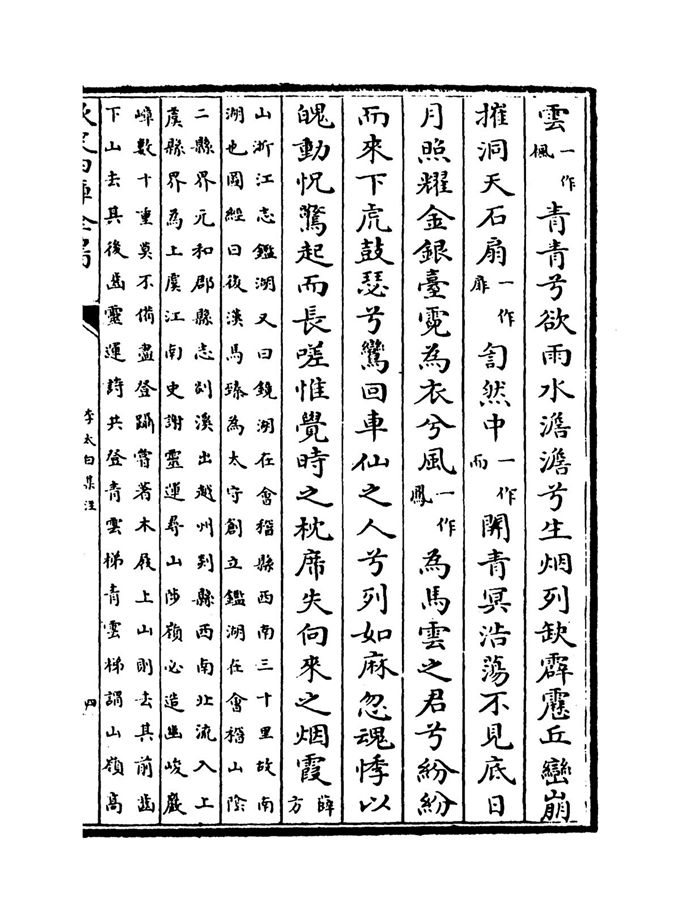 雲一作楓青青兮欲雨水澹澹兮生烟列缺霹靂丘巒崩
摧洞天石扇一作扉訇然中一作而開青冥浩蕩不見底日
月照耀金銀臺霓為衣兮風一作鳳為馬雲之君兮紛紛
而來下虎鼓瑟兮鸞回車仙之人兮列如麻忽魂悸以
魄動怳驚起而長嗟惟覺時之枕席失向來之烟霞薛方
山浙江志鑑湖又曰鏡湖在會稽縣西南三十里故南
湖也圖經曰後漢馬臻為太守創立鑑湖在會稽山陰
二縣界元和郡縣志剡溪出越州剡縣西南北流入上
虞縣界為上虞江南史謝靈運尋山陟嶺必造幽峻巖
嶂數十重莫不備盡登躡嘗著木屐上山則去其前齒
下山去其後齒靈運詩共登青雲梯青雲梯謂山嶺高
欽定四庫全書
李太白集注
四